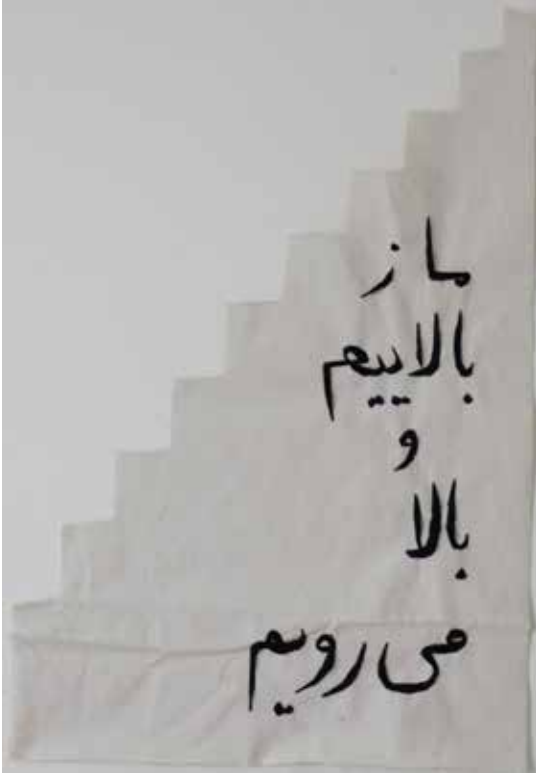 ما ز
بالاییم
و
بالا
می رویم